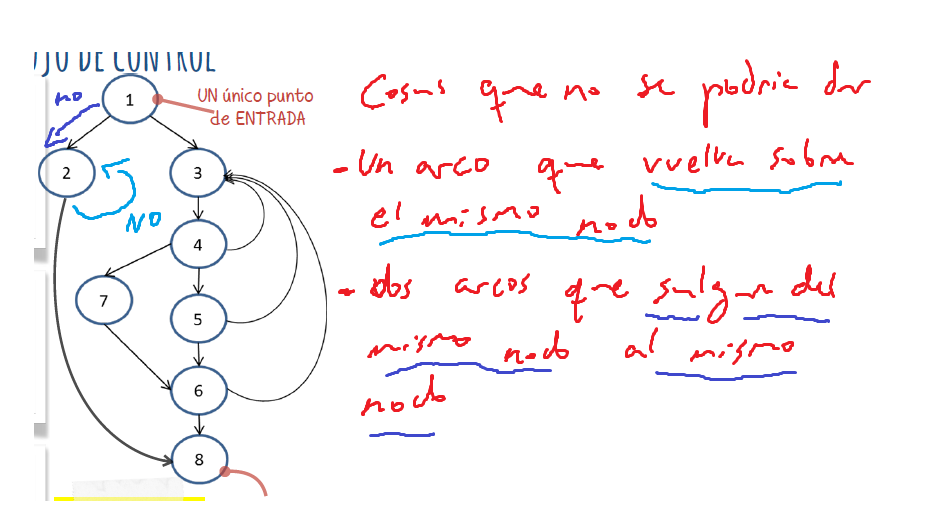 UJO DE CONTROL
no
1
UN único punto
de ENTRADA
2
3
NO
4
7
5
6
8
Cosas que no se podria dar
- Un arco que vuelva sobre
el mismo nodo
- dos arcos que salgan del
mismo nodo al mismo
nodo